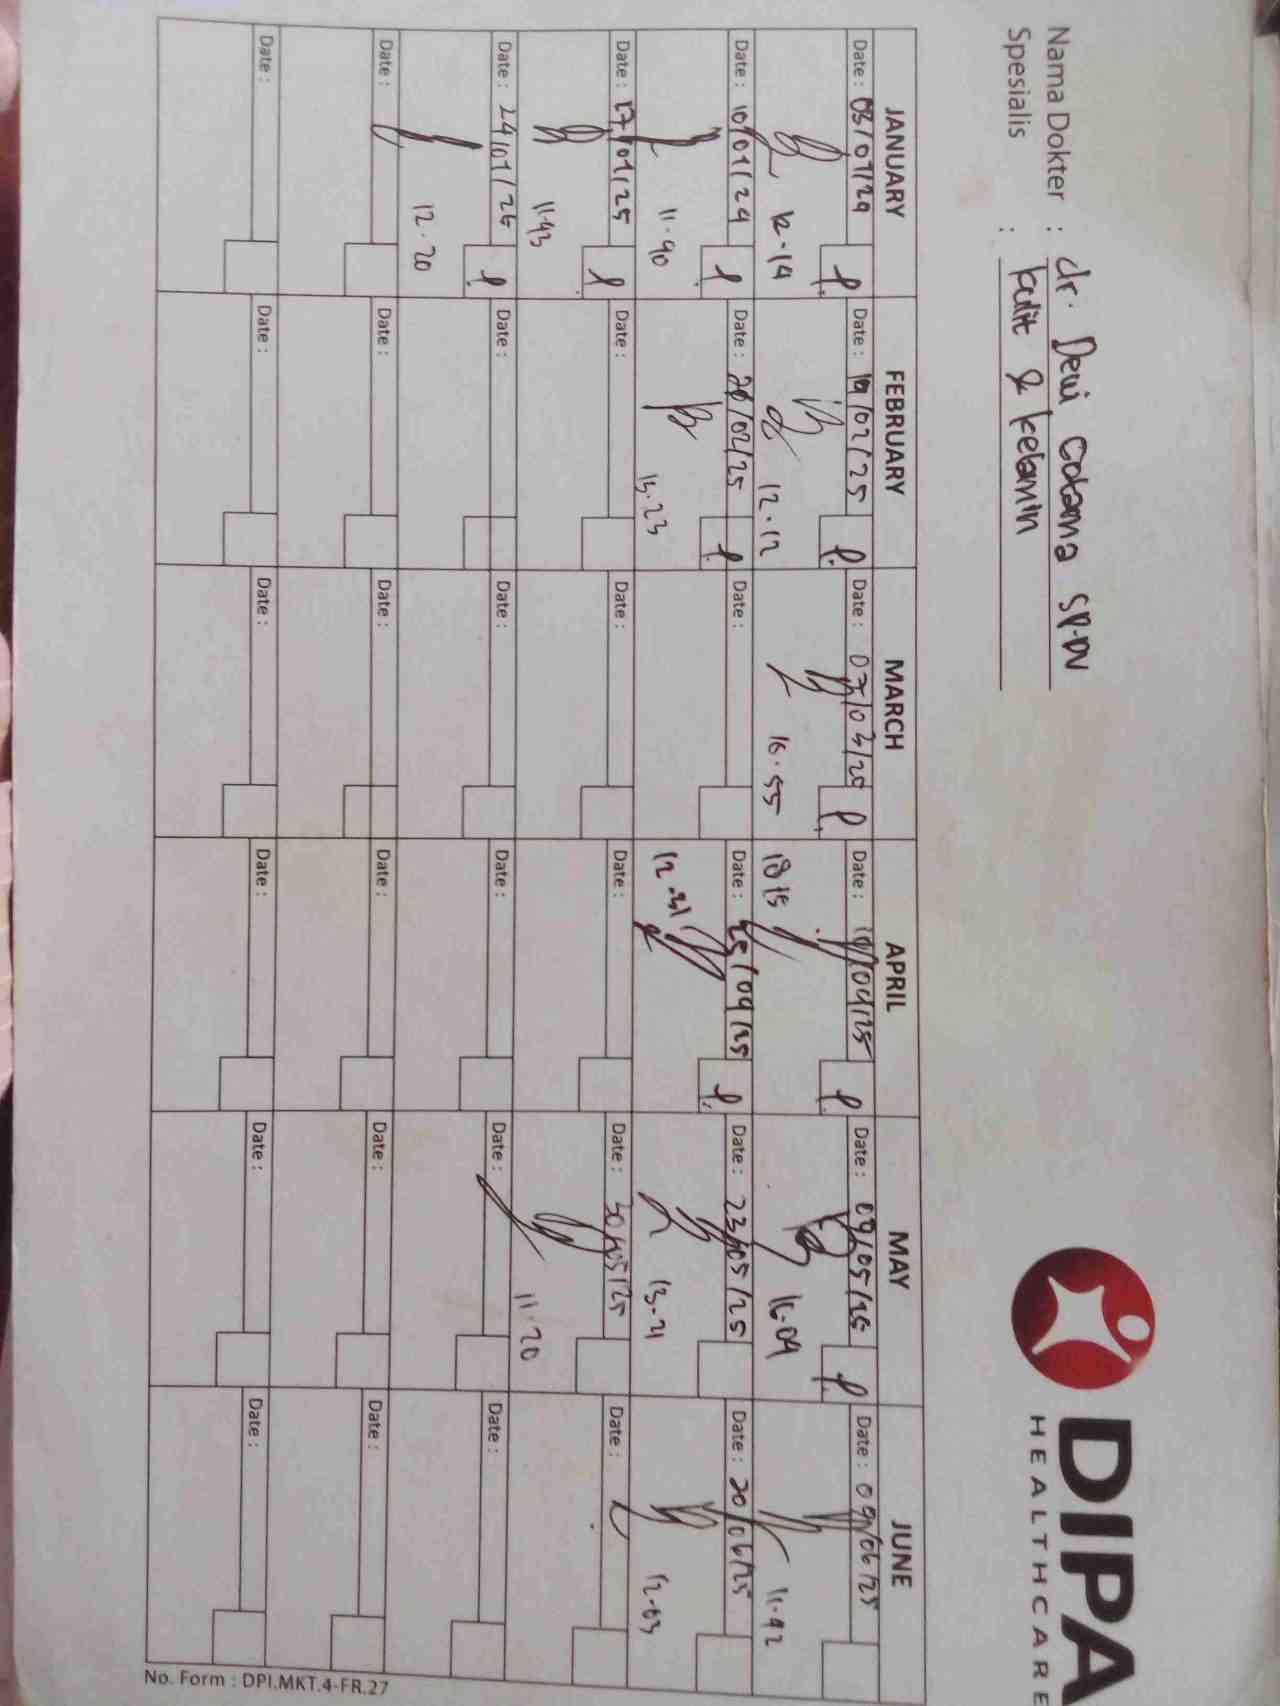 DIPA
HEALTHCARE
Nama Dokter : dr. Dewi Cotama SP.DV
Spesialis : kulit & kelamin
JANUARY FEBRUARY MARCH APRIL MAY JUNE
Date : 03/01/24 Date : 19/02/25 Date : 07/03/25 Date : 10/04/25 Date : 09/05/25 Date : 09/06/25
P. P. P P. P.
12.14 12.12 16.55 1815 16.09 11.42
Date : 10/01/24 Date : 20/02/25 Date : Date : 25/04/25 Date : 23/05/25 Date : 20/06/25
P P P.
11.40 13.23 12.31 13.21 12.03
Date : 17/01/25 Date : Date : Date : Date : 30/05/25 Date :
P
11.43 11.20
Date : 24/01/25 Date : Date : Date : Date : Date :
P.
12.20
Date : Date : Date : Date : Date : Date :
Date : Date : Date : Date : Date : Date :
No. Form : DPI.MKT.4-FR.27